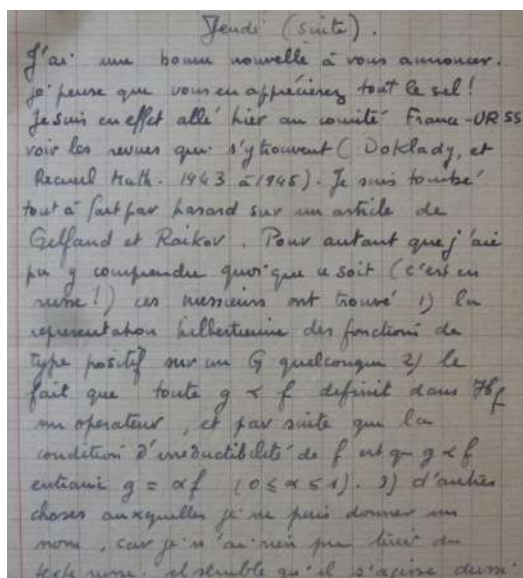 Jeudi (suite).
J'ai une bonne nouvelle à vous annoncer.
je pense que vous en apprécierez tout le sel!
Je suis en effet allé hier au comité France-URSS
voir les revues qui s'y trouvent (Doklady, et
Recueil Math. 1943 à 1945). Je suis tombé
tout à fait par hasard sur un article de
Gelfand et Raikov. Pour autant que j'aie
pu y comprendre quoi que ce soit (c'est en
russe!) ces messieurs ont trouvé 1) la
representation hilbertienne des fonctions de
type positif sur un G quelconque 2) le
fait que toute g < f definit dans H_f
un operateur, et par suite que la
condition d'irreductibilité de f est que g < f
entraine g = αf (0 ≤ α ≤ 1). 3) d'autres
choses auxquelles je ne puis donner un
nom, car je n'ai rien pu tirer du
texte russe. il semble qu'il s'agisse aussi